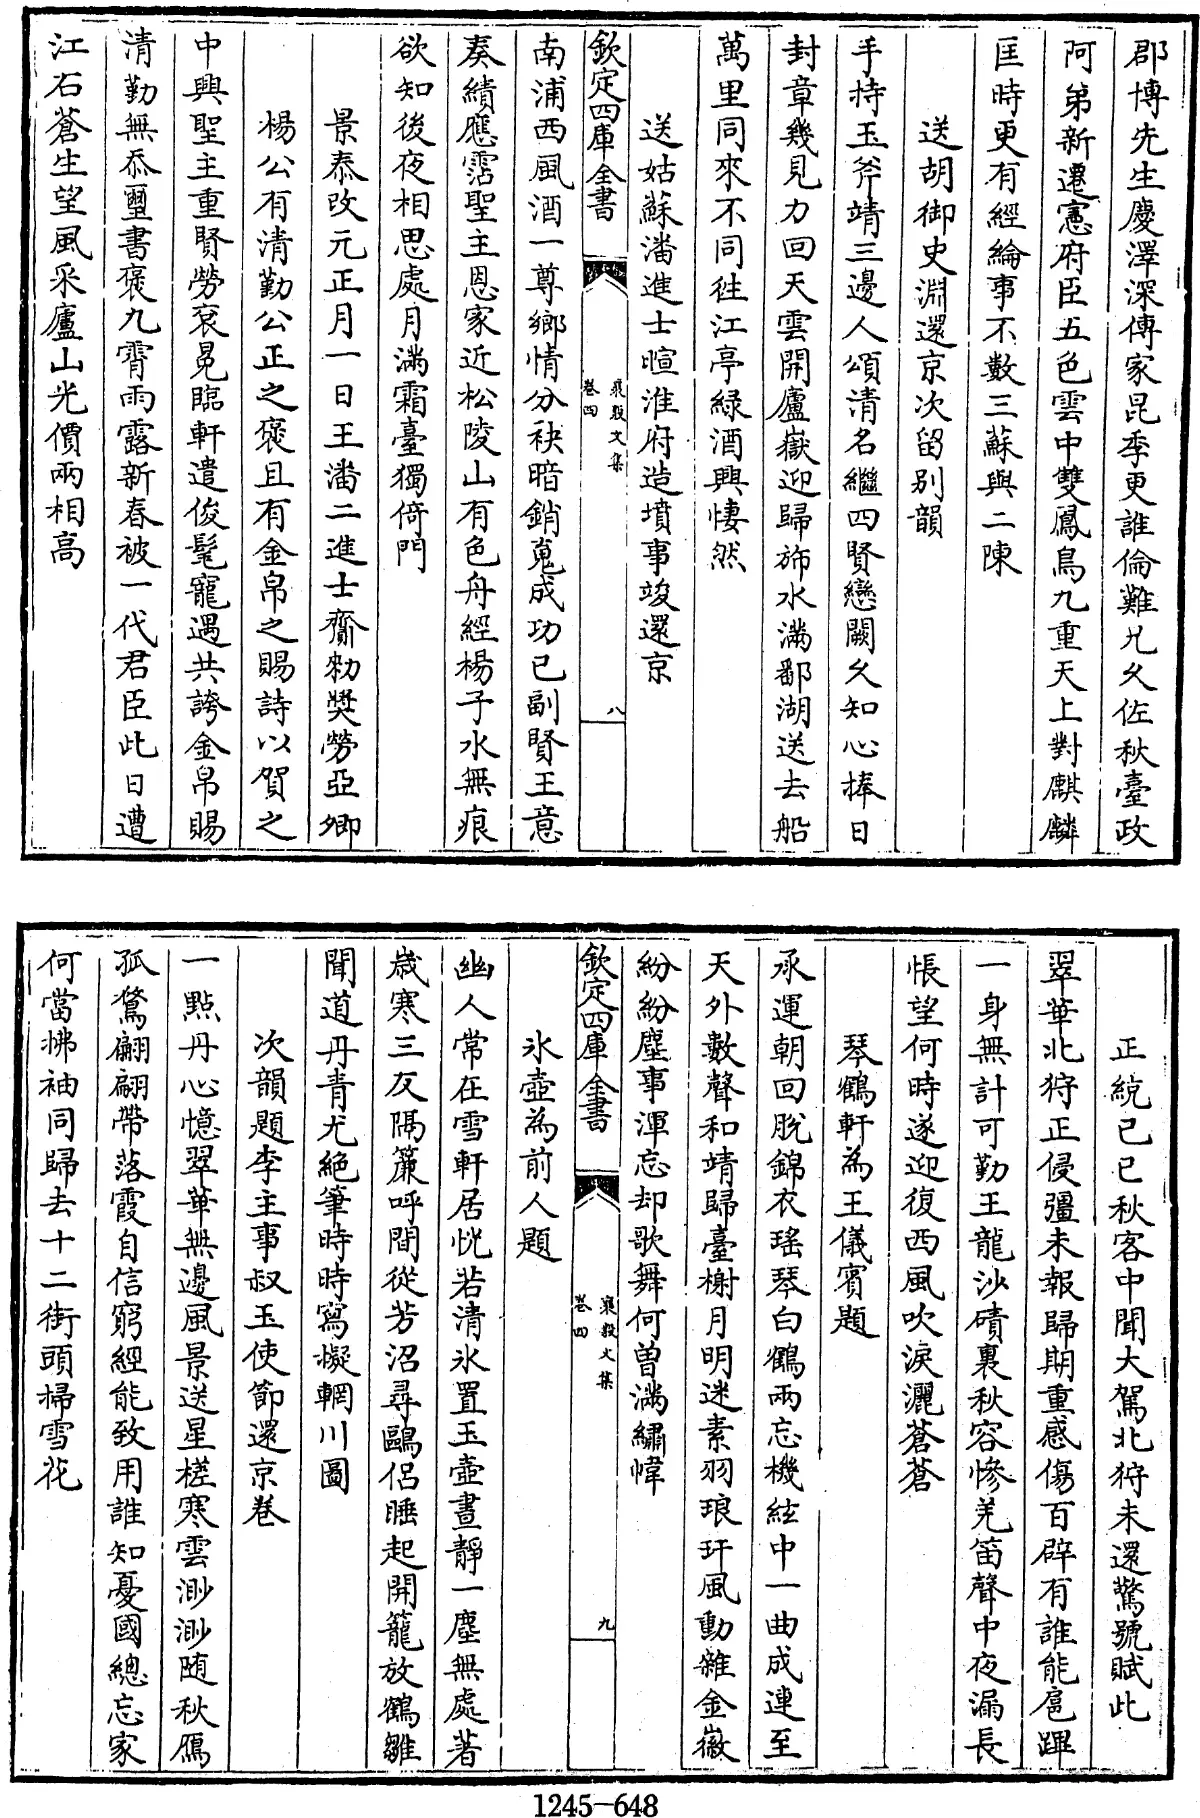 郡博先生慶澤深傳家昆季更誰倫難九久佐秋臺政
阿弟新遷憲府臣五色雲中雙鳳鳥九重天上對麒麟
匡時更有經綸事不數三蘇與二陳
送胡御史淵還京次留别韻
手持玉斧靖三邊人頌清名繼四賢戀闕久知心捧日
封章幾見力回天雲開廬嶽迎歸斾水滿鄱湖送去船
萬里同來不同徃江亭緑酒興悽然
送姑蘇潘進士暄淮府造墳事竣還京
欽定四庫全書
襄毅文集
卷四
八
南浦西風酒一尊鄉情分袂暗銷䰟成功已副賢王意
奏績應霑聖主恩家近松陵山有色舟經楊子水無痕
欲知後夜相思處月滿霜臺獨倚門
景泰改元正月一日王潘二進士齎勑奬勞亞卿
楊公有清勤公正之褒且有金帛之賜詩以賀之
中興聖主重賢勞衮冕臨軒遣俊髦寵遇共誇金帛賜
清勤無忝璽書褒九霄雨露新春被一代君臣此日遭
江右蒼生望風采廬山光價兩相高
正統己巳秋客中聞大駕北狩未還驚號賦此
翠華北狩正侵疆未報歸期重感傷百辟有誰能扈蹕
一身無計可勤王龍沙磧裏秋容慘羌笛聲中夜漏長
悵望何時遂迎復西風吹淚灑蒼蒼
琴鶴軒為王儀賓題
承運朝回脫錦衣瑤琴白鶴兩忘機絃中一曲成連至
天外數聲和靖歸臺榭月明迷素羽琅玕風動雜金徽
紛紛塵事渾忘却歌舞何曾滿繡幃
欽定四庫全書
襄毅文集
卷四
九
氷壺為前人題
幽人常在雪軒居恍若清氷置玉壺晝靜一塵無處著
歲寒三友隔簾呼間從芳沼尋鷗侣睡起開籠放鶴雛
聞道丹青尤絶筆時時寫擬輞川圖
次韻題李主事叔玉使節還京卷
一點丹心憶翠華無邊風景送星槎寒雲渺渺随秋鴈
孤鶩翩翩帶落霞自信窮經能致用誰知憂國總忘家
何當拂袖同歸去十二街頭掃雪花
1245-648